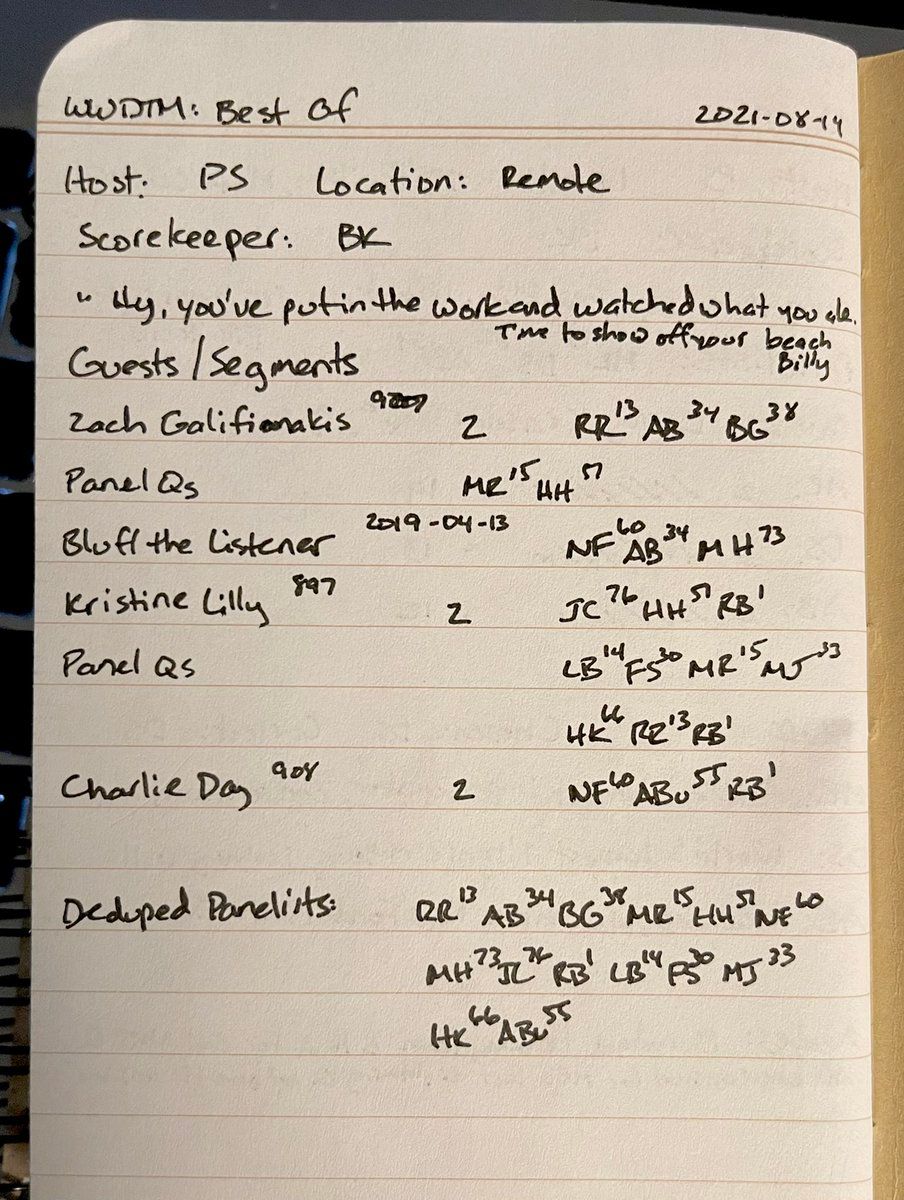 WWDTM: Best Of 2021-08-14
Host: PS Location: Remote
Scorekeeper: BK
" Hey, you've put in the work and watched what you ate.
Time to show off your beach
Billy
Guests/Segments
Zach Galifianakis 2 RR13 AB34 BG38
Panel Qs MR15 HH57
Bluff the Listener 2019-04-13 NF60 AB34 MH73
Kristine Lilly 897 2 JC76 HH57 RB1
Panel Qs LB14 FS30 MR15 MJ33
HK66 RR13 RB1
Charlie Day 908 2 NF60 ABu55 RB1
Deduped Panelists: RR13 AB34 BG38 MR15 HH57 NF60
MH73 JC76 RB1 LB14 FS30 MJ33
HK66 ABu55